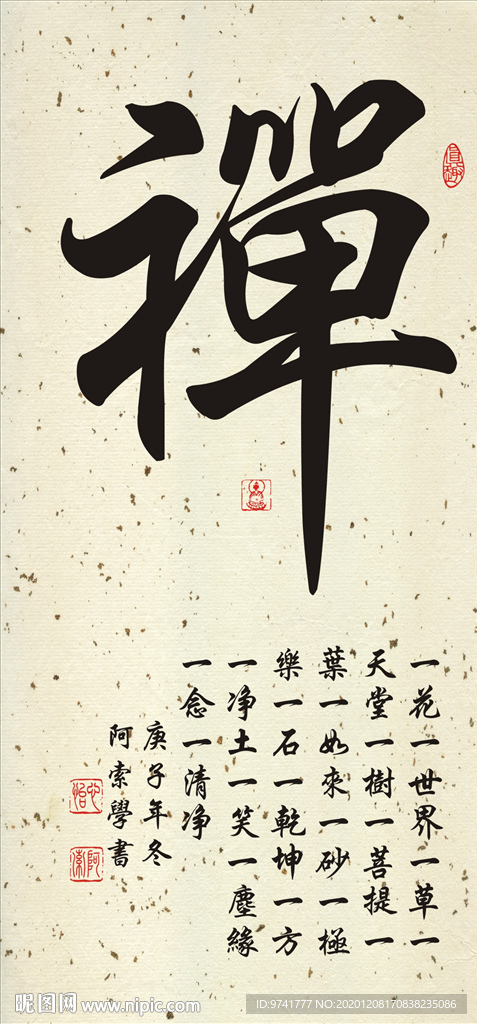 禪
一花一世界一草一
天堂一樹一菩提一
葉一如來一砂一極
樂一石一乾坤一方
一净土一笑一塵緣
一念一清净
庚子年冬
阿索學書
昵图网 www.nipic.com
ID:9741777 NO:20201208170838235086